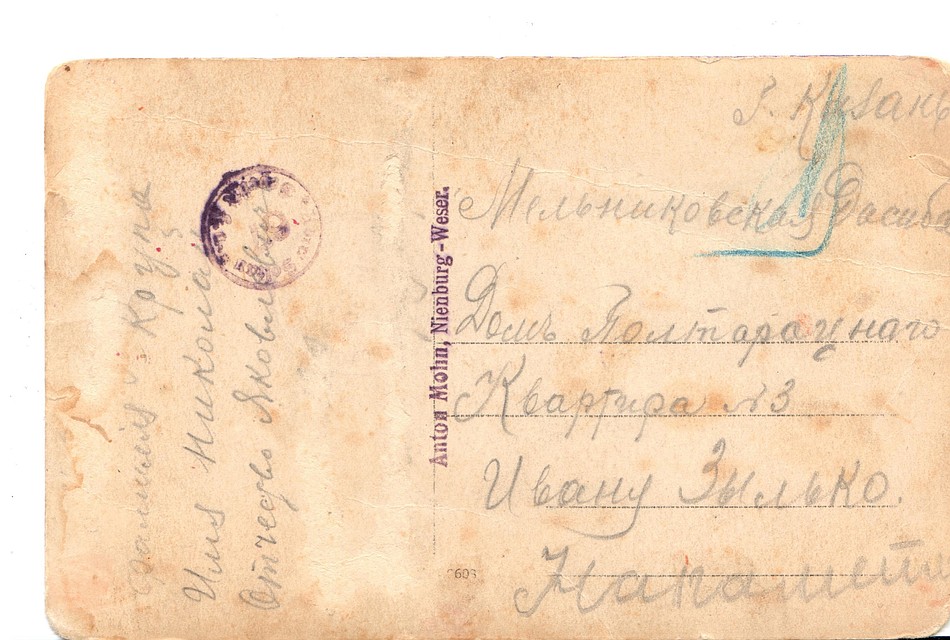 Фамилія Крупа
Имя Николай
Отчество Яковлевич
Anton Mohn, Nienburg-Weser.
Г. Казань
Мельниковская
Домъ Полтарацкаго
Квартира №3
Ивану Зылько.
На память